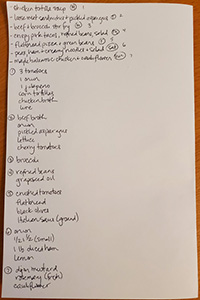 - chicken tortilla soup 1
- loose meat sandwiches + pickled asparagus 2
- beef + broccoli stir fry 3
- crispy pork tacos, refried beans, salad 4
- flatbread pizza + green beans 5
- peas, ham + creamy noodles + salad 6
- maple balsamic chicken + cauliflower 7
① 3 tomatoes
1 onion
1 jalapeno
corn tortillas
chicken broth
lime
② beef broth
onion
pickled asparagus
lettuce
cherry tomatoes
③ broccoli
④ refried beans
grapeseed oil
⑤ crushed tomatoes
flatbread
black olives
Italian sausage (ground)
⑥ onion
1/2 & 1/2 (small)
1 lb diced ham
lemon
⑦ dijon mustard
rosemary (fresh)
cauliflower